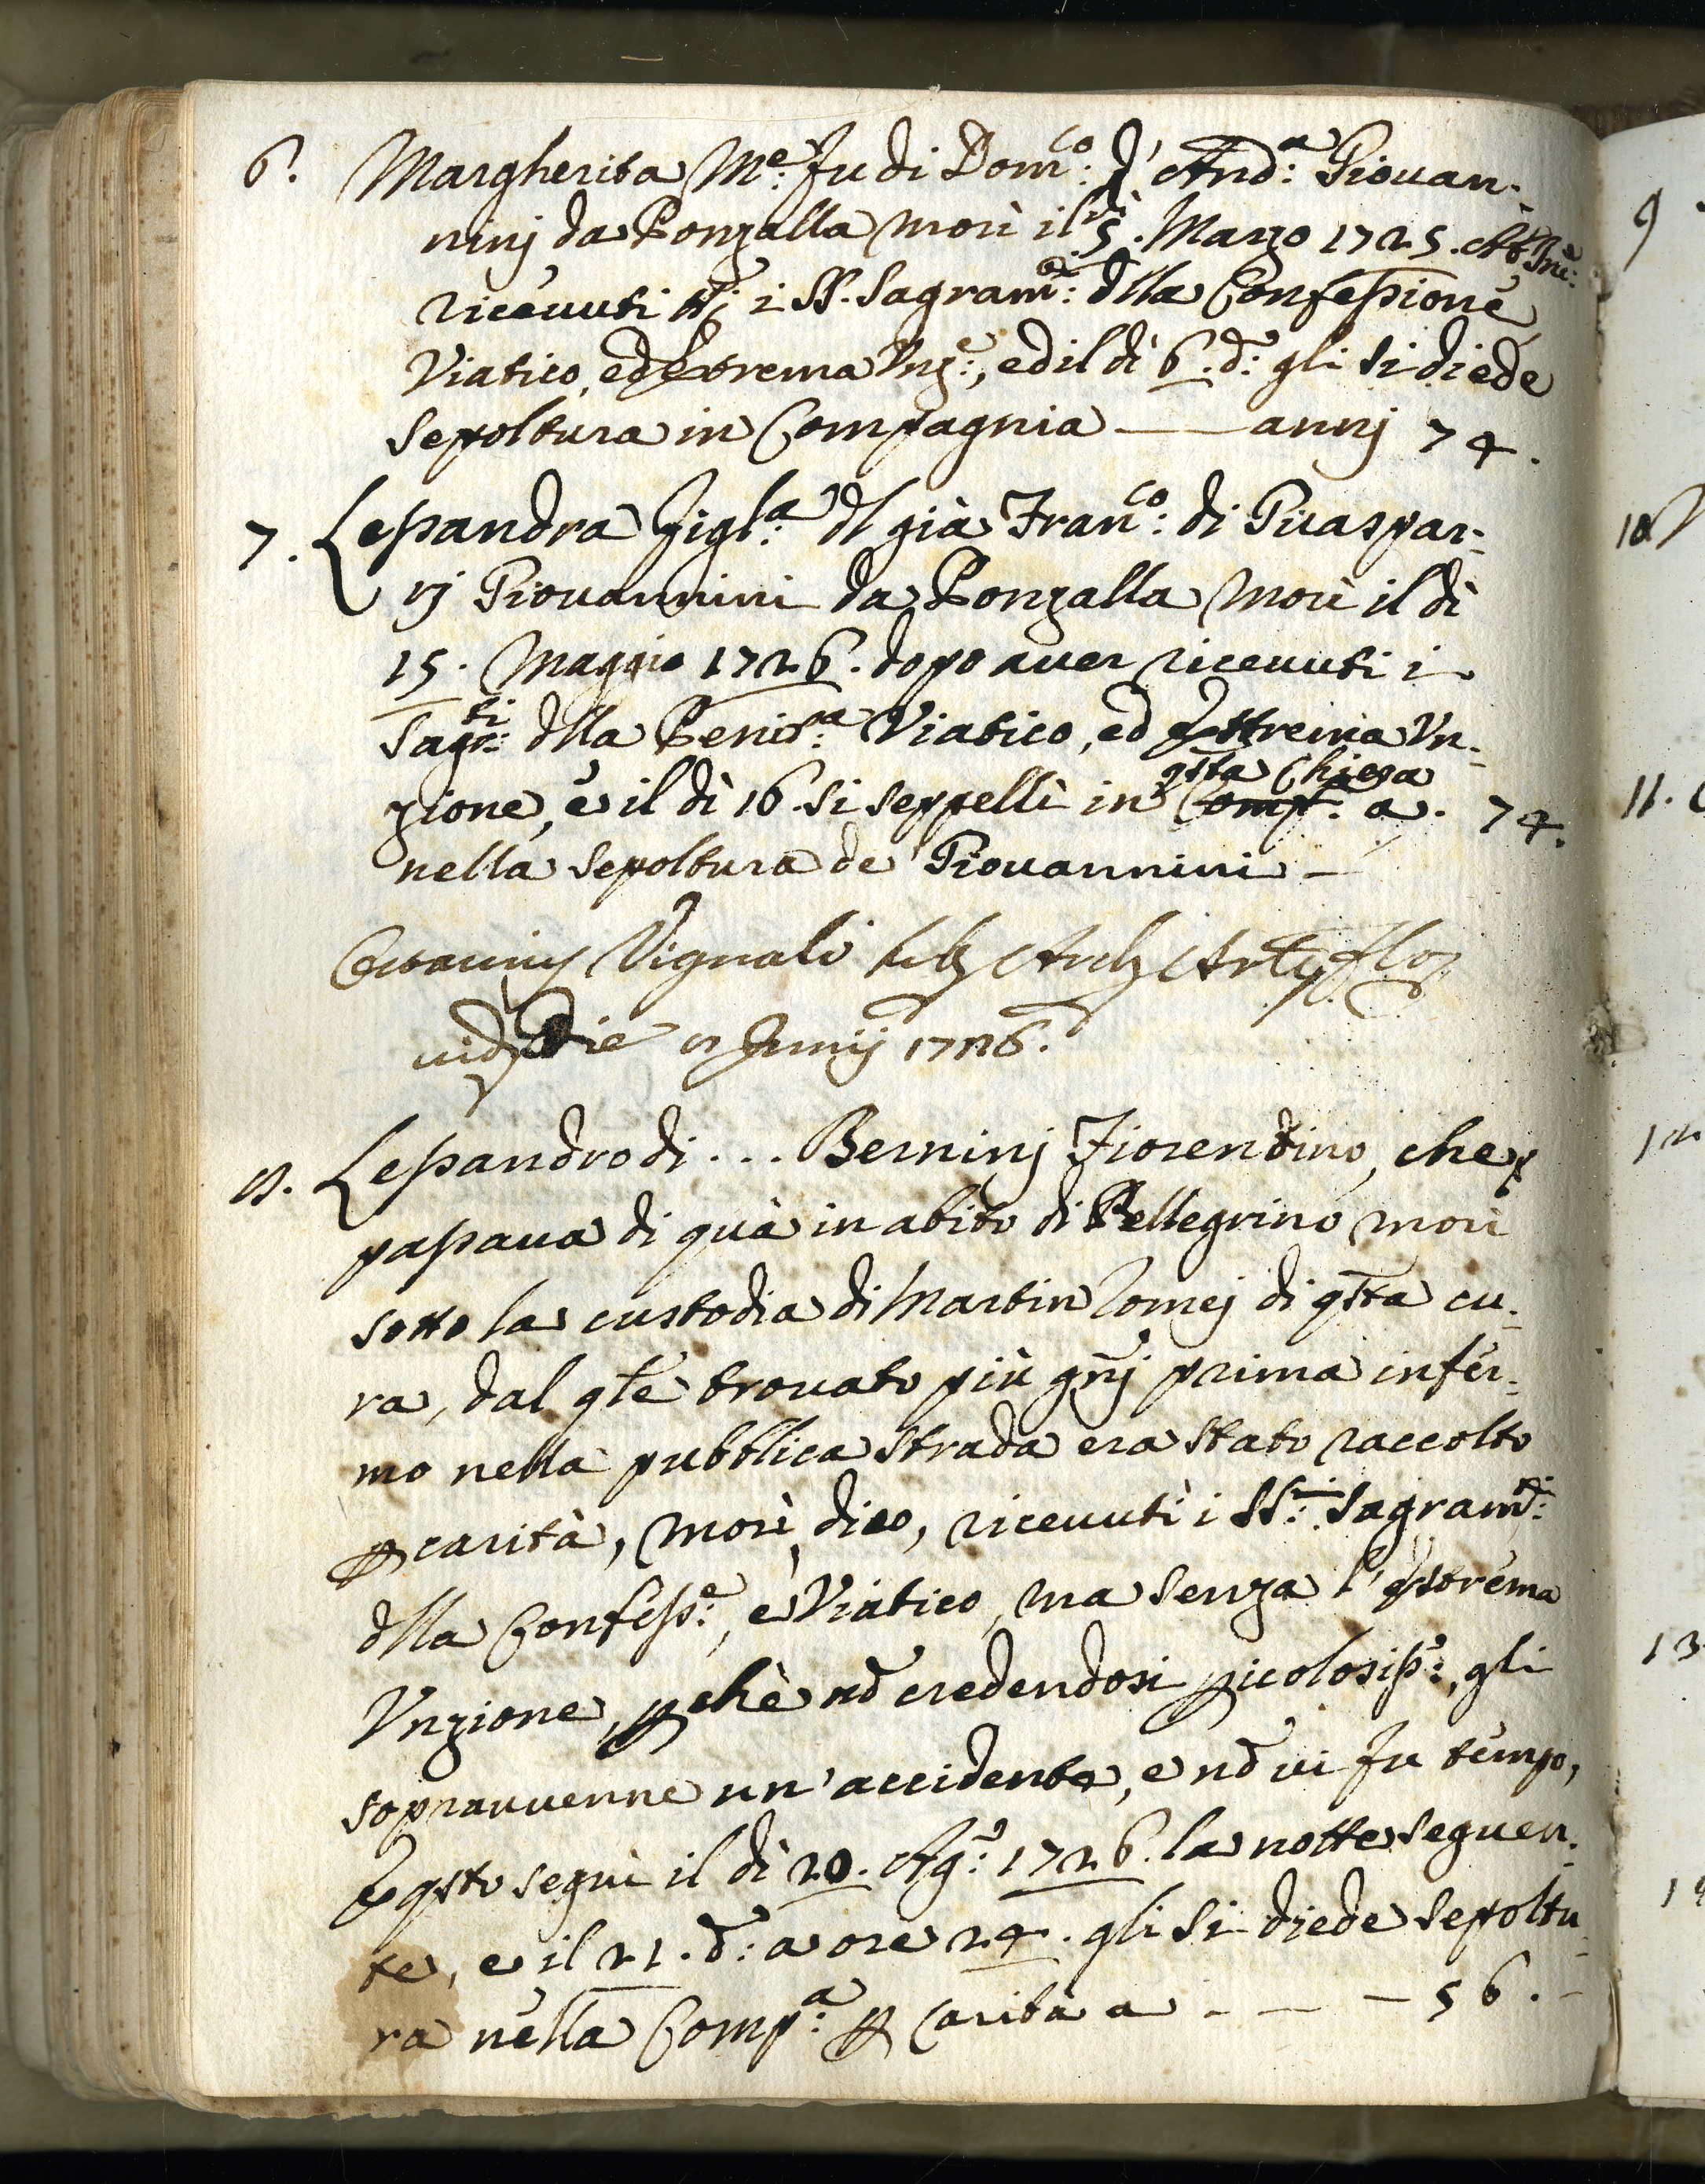 6. Margherita M.e fu di Dom.co d'And.a Giovan-
ninj da Ponzalla morì il dì 5. Marzo 1725. Ab Inc.
ricevuti tti i SS. Sagram.ti dlla Confessione
Viatico, ed Estrema Unz.e, ed il dì 6. d.o gli si diede
sepoltura in Compagnia — annj 74.
7. Lessandra figl.a dl già Fran.co di Guaspar-
rj Giovannini da Ponzalla morì il dì
15. Maggio 1726. dopo aver ricevuti i
Sagr.ti dlla Penit.a Viatico, ed Estrema Un-
qsta Chiesa
zione, e il dì 16. si seppellì in Comp.a a. 74.
nella sepoltura de Giovannini —
Vignali
die Junij 1726.
8. Lessandro di ... Berninj Fiorentino, che
passava di quà in abito di Pellegrino morì
sotto la custodia di Martin Tomej di qsta cu-
ra, dal qle trovato più gnj prima infer-
mo nella pubblica strada era stato raccolto
p carità, morì, dico, ricevuti i SS.i Sagram.ti
dlla Confess.e, e Viatico, ma senza l'Estrema
Unzione, pchè nō credendosi picolosiss.o, gli
sopravvenne un'accidente, e nō vi fu tempo,
E qsto seguì il dì 20. Ag.o 1726. la notte seguen-
te, e il 21. d.o a ore 24. gli si diede sepoltu-
ra nella Comp.a p Carità a - — — 56. -
9
10
11. C
12
13